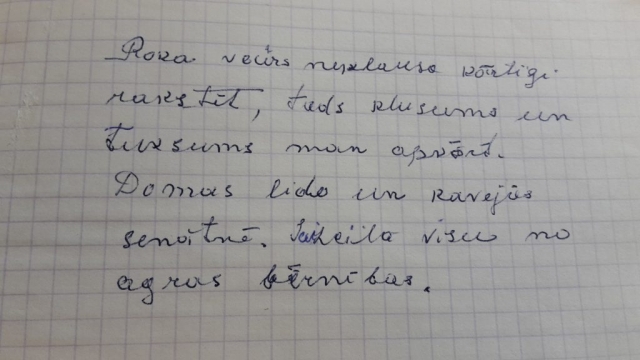 Roka vairs neklausa kārtīgi
rakstīt, tāds klusums un
tuksums man apvārt.
Domas lido un kavējās
senātnē. Izsķeita visu no
agras bērnības.